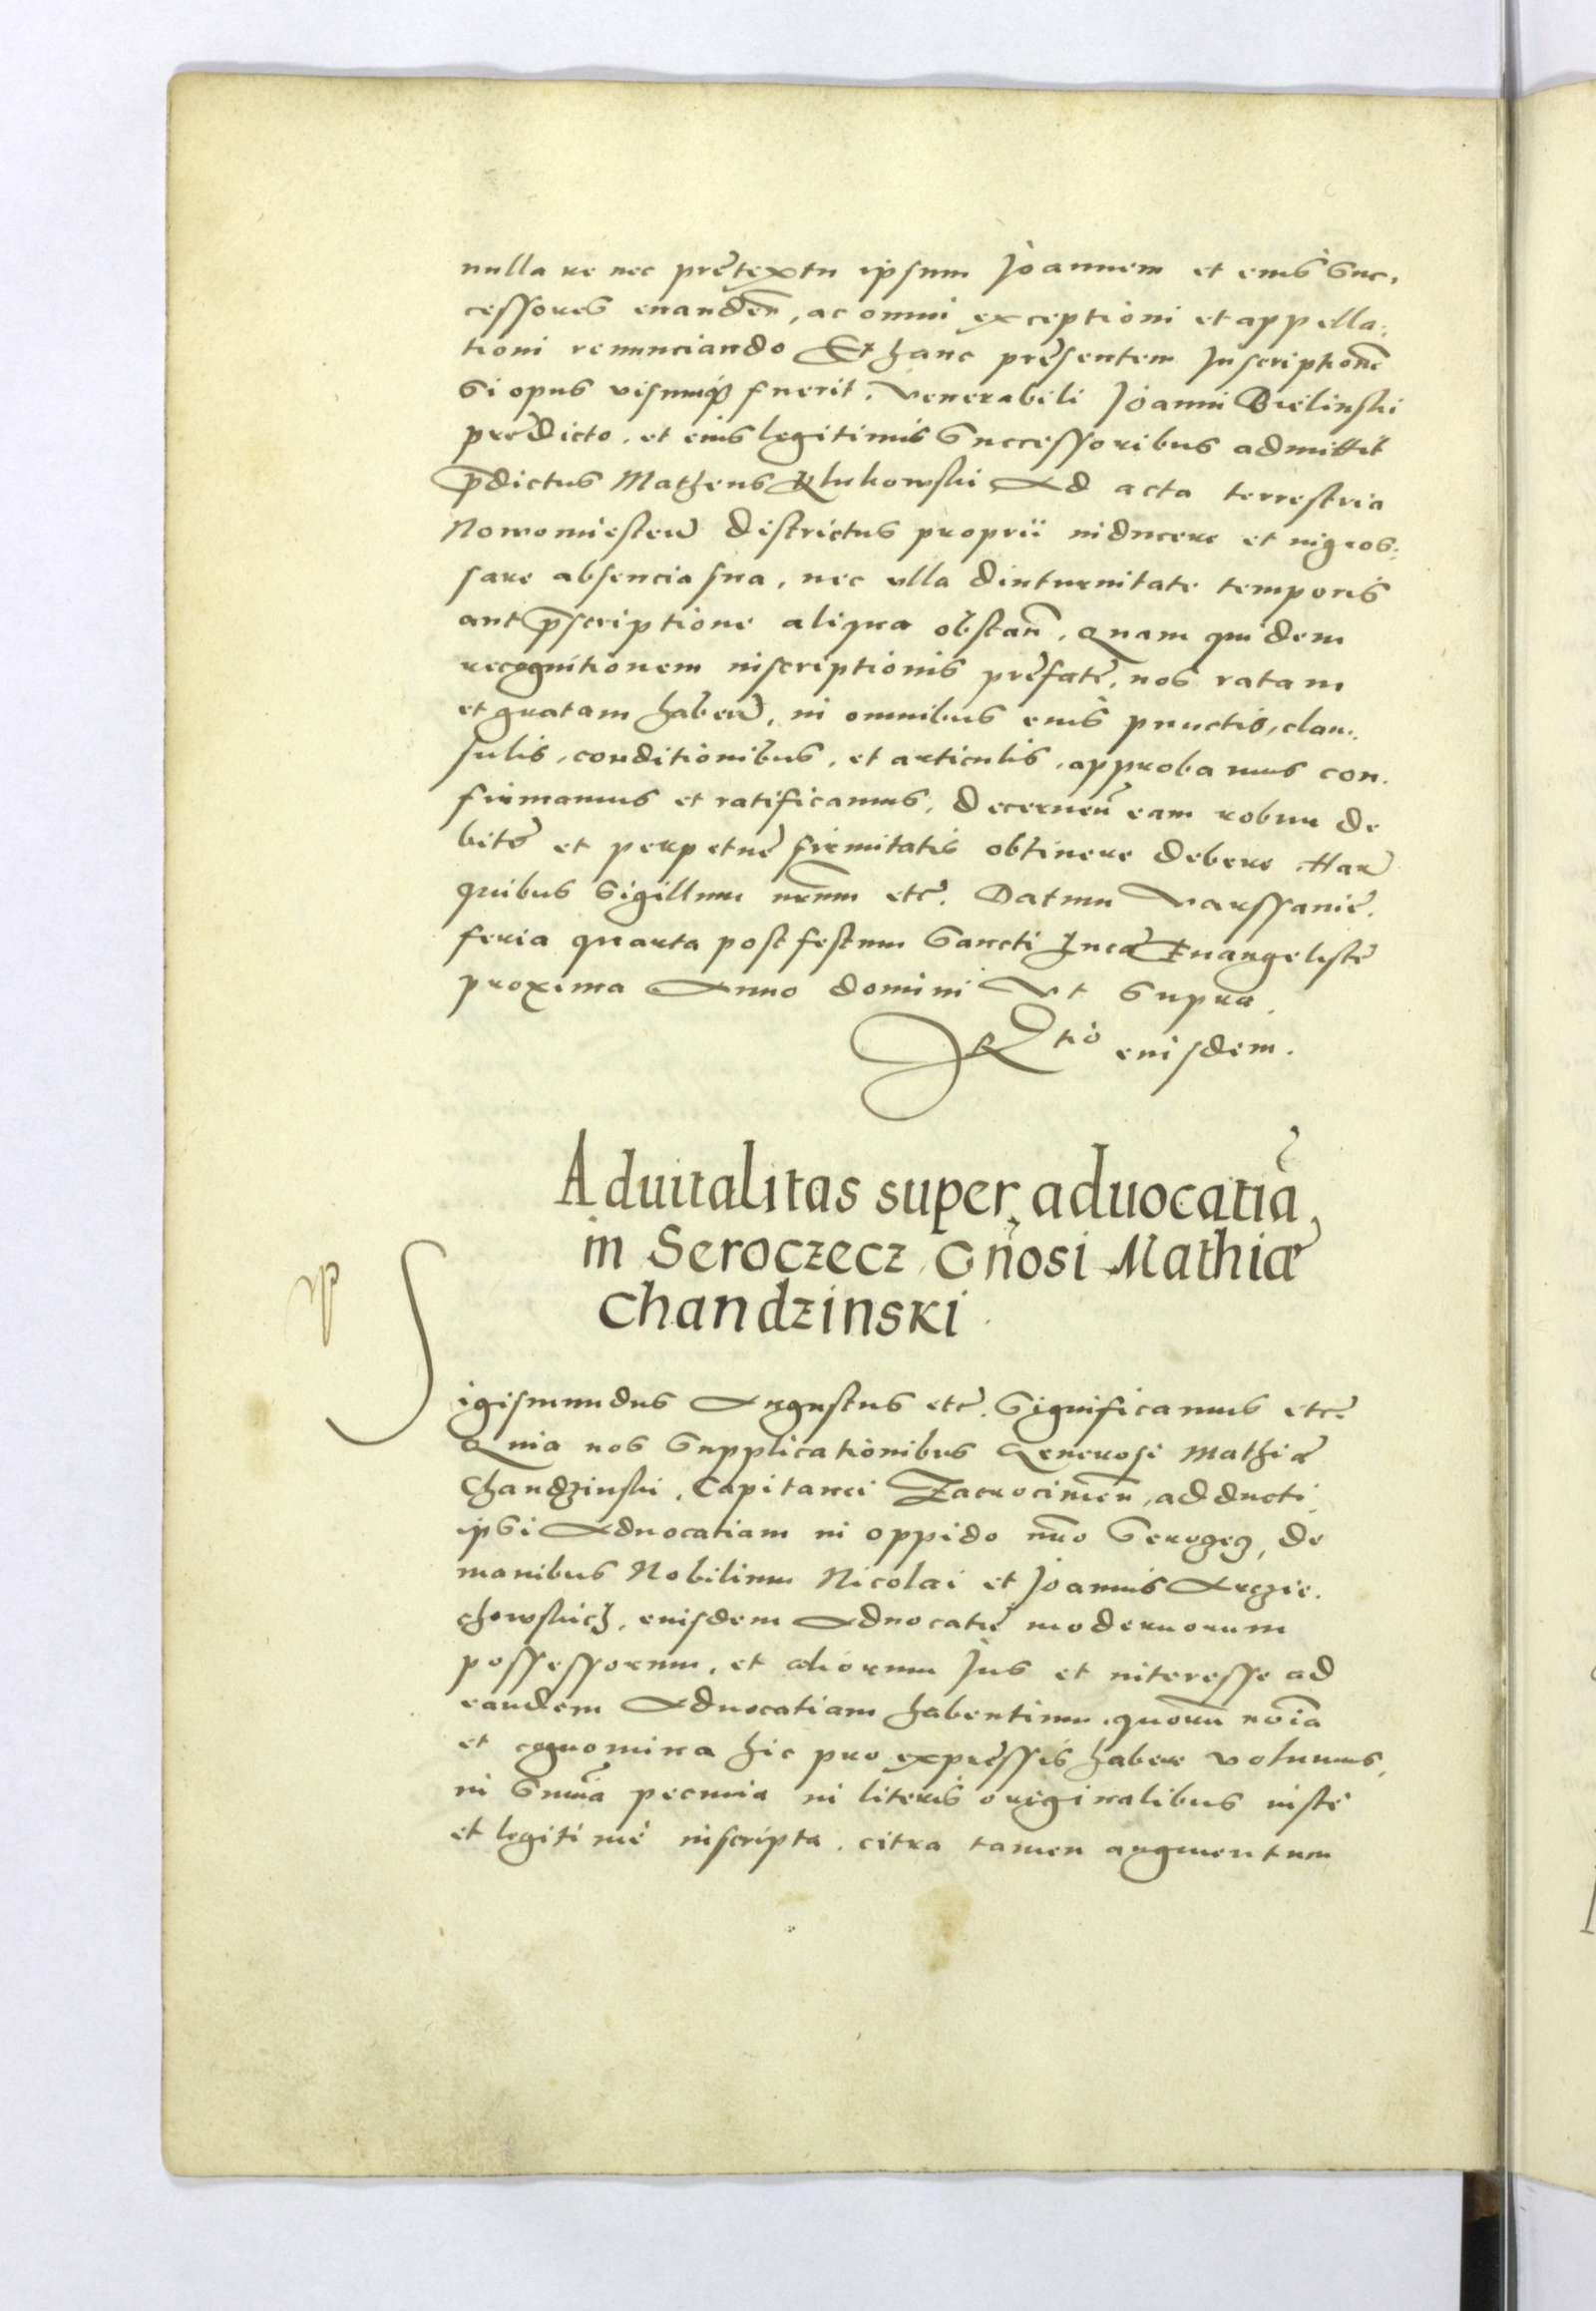 nulla re nec prętextu ipsum Joannem et eius suc,
cessores euanden̄, ac omni exceptioni et appella:
tioni renunciando Et hanc pręsentem Inscriptionē
si opus visumq̨ fuerit, Venerabili Joanni Bielinski
prędicto, et eius legitimis successoribus admittit
p̄dictus Matheus Klukowski Ad acta terrestria
Nowomiesten̄ districtus proprii inducere et ingros:
sare absencia sua, nec ulla diuturnitate temporis
aut p̄scriptione aliqua obstan̄, Quam quidem
recognitionem inscriptionis pręfatę, nos ratam
et gratam haben̄, in omnibus eius punctis, clau:
sulis, conditionibus, et articulis, approbamus con:
firmamus et ratificamus, decernen̄ eam robur de
bitę et perpetuę firmitatis obtinere debere Har̄
quibus sigillum nr̄um etc̄. Datum Varssauię.
feria quarta post festum Sancti Lucæ Euangelistę
proxima Anno domini Vt supra.
R̄tio eiusdem.
Aduitalitas super aduocatiā
in Seroczecz Gn̄osi Mathiæ
Chandzinski
Sigismundus Augustus etc̄. Significamus etc̄.
Quia nos supplicationibus Generosi Mathiæ
Chandzinski, Capitanei Zacrocimen̄, adducti,
ipsi Aduocatiam in oppido nr̄o Seroczecz, de
manibus Nobilium Nicolai et Joannis
chowskich, eiusdem Aduocatię modernorum
possessorum, et aliorum Jus et interesse ad
eandem Aduocatiam habentium, quorū no͞ia
et cognomina hic pro expressis habere volumus,
in sum̄a pecunia in literis originalibus iustè
et legitimè inscripta, citra tamen augmentum